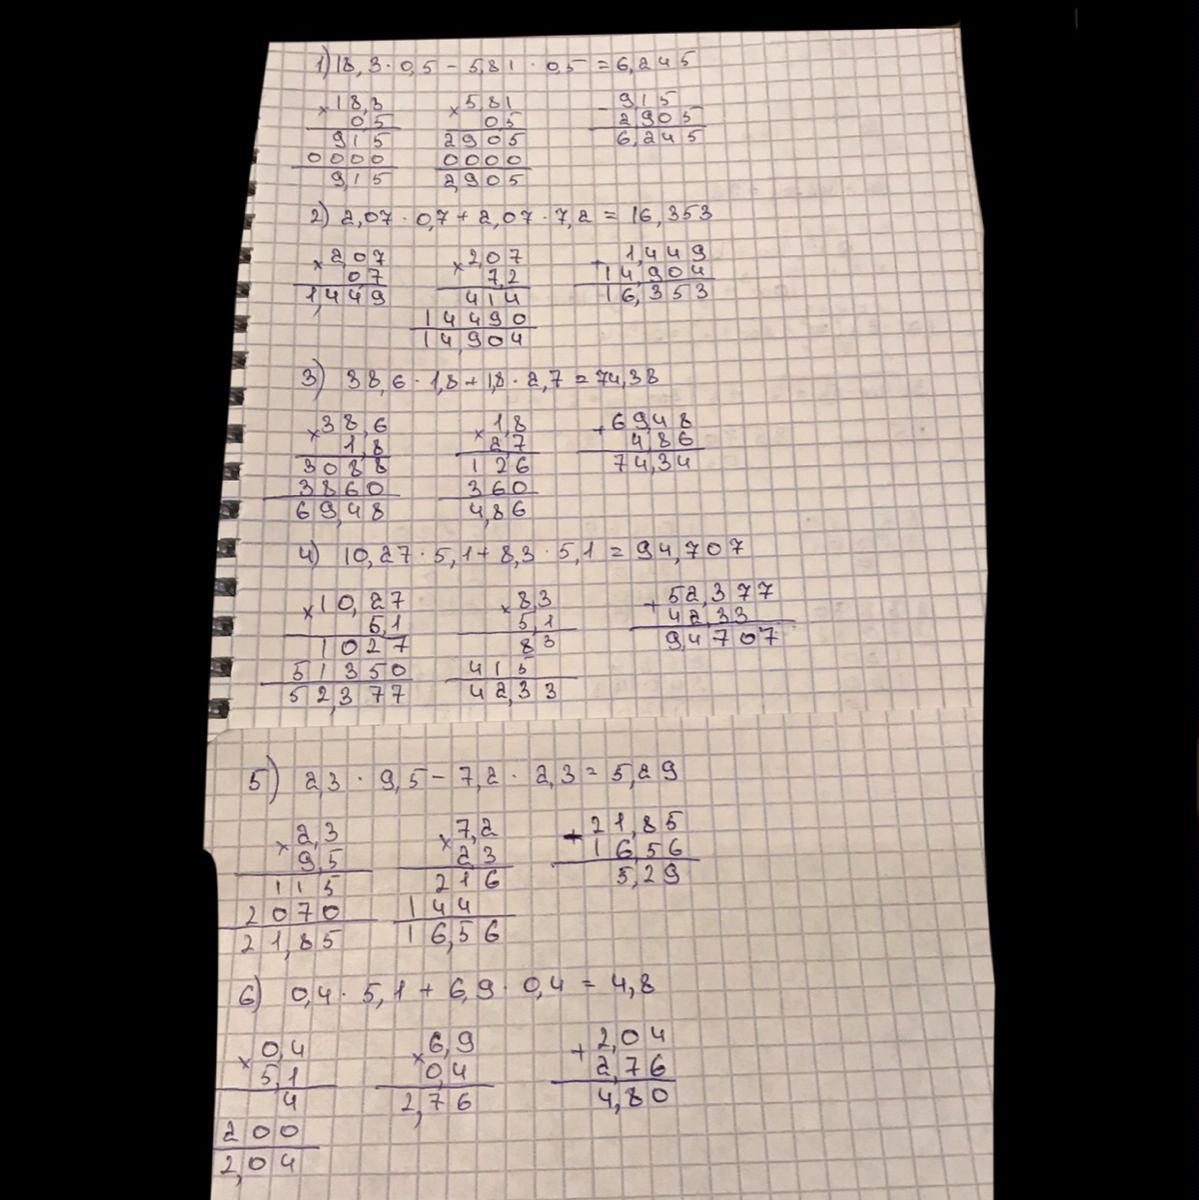 1) 18,3 · 0,5 - 5,81 · 0,5 = 6,245
× 18,3 × 5,81 - 9,15
0,5 0,5 2,905
915 2905 6,245
0000 0000
9,15 2,905
2) 2,07 · 0,7 + 2,07 · 7,2 = 16,353
× 2,07 × 2,07 + 1,449
0,7 7,2 14,904
1,449 414 16,353
14490
14,904
3) 38,6 · 1,8 + 1,8 · 2,7 = 74,38
× 38,6 × 1,8 + 69,48
1,8 2,7 4,86
3088 126 74,34
3860 360
69,48 4,86
4) 10,27 · 5,1 + 8,3 · 5,1 = 94,707
× 10,27 × 8,3 + 52,377
5,1 5,1 42,33
1027 83 94,707
51350 415
52,377 42,33
5) 2,3 · 9,5 - 7,2 · 2,3 = 5,29
× 2,3 × 7,2 + 21,85
9,5 2,3 16,56
115 216 5,29
2070 144
21,85 16,56
6) 0,4 · 5,1 + 6,9 · 0,4 = 4,8
× 0,4 × 6,9 + 2,04
5,1 0,4 2,76
4 2,76 4,80
200
2,04